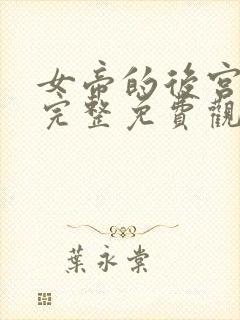 女帝的後宮
完整免費觀
葉永棠